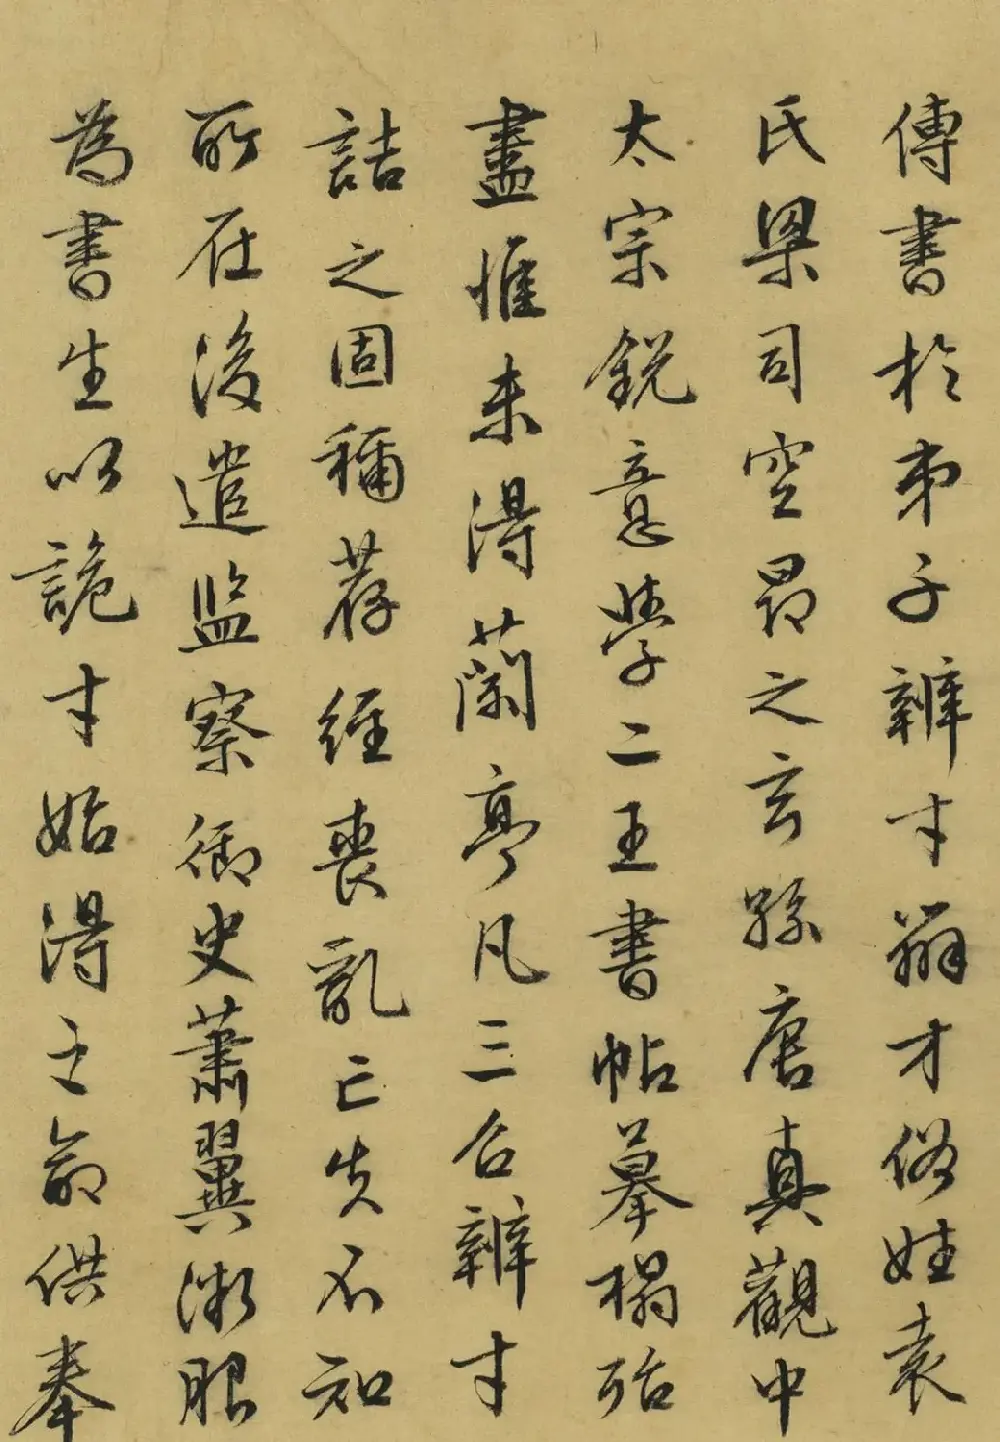 傳書於弟子辨才辯才俗姓袁
氏梁司空昂之玄孫唐真觀中
太宗銳意學二王書帖摹榻殆
盡惟未得蘭亭凡三召辨才
詰之固稱荐經喪亂亡失不知
所在後遣監察御史蕭翼微服
為書生以詭才始得之命供奉